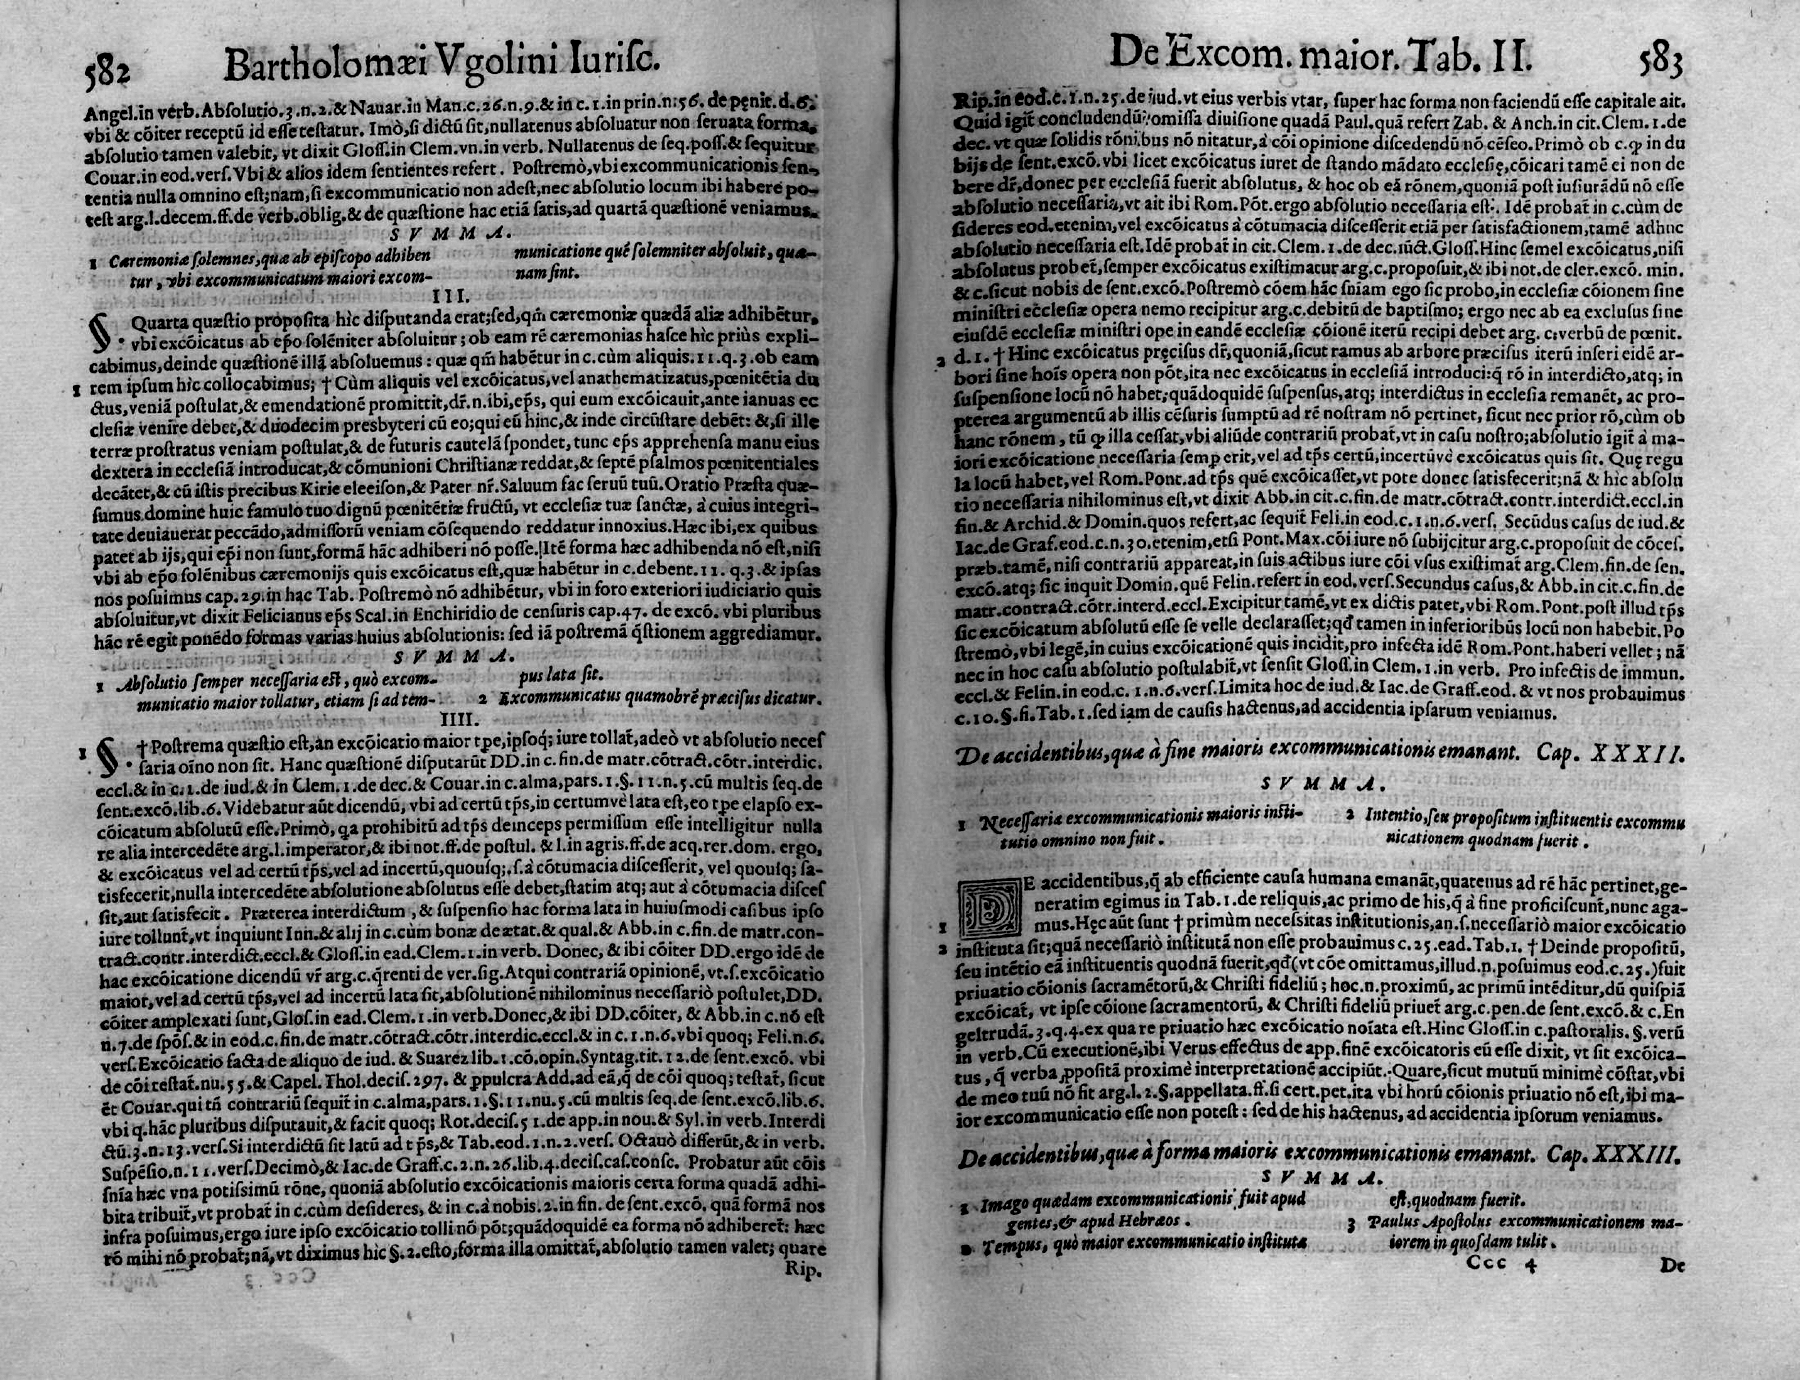 582 Bartholomæi Vgolini Iurisc.
Angel.in verb.Absolutio.3.n.2.& Nauar.in Man.c.26.n.9.& in c.1.in prin.n:56. de pęnit.d.6.
vbi & cõiter receptũ id esse testatur. Imò,si dictũ sit,nullatenus absoluatur non seruata forma,
absolutio tamen valebit, vt dixit Gloss.in Clem.vn.in verb. Nullatenus de seq.poss.& sequitur
Couar.in eod.vers.Vbi & alios idem sentientes refert. Postremò,vbi excommunicationis sen-
tentia nulla omnino est;nam,si excommunicatio non adest,nec absolutio locum ibi habere po-
test arg.l.decem.ff.de verb.oblig.& de quæstione hac etiã satis,ad quartã quæstionẽ veniamus.
S V M M A.
1 Cæremoniæ solemnes,quæ ab episcopo adhiben
tur, vbi excommunicatum maiori excom-
municatione quẽ solemniter absoluit, quæ-
nam sint.
III.
§. Quarta quæstio proposita hìc disputanda erat;sed,qm̃ cæremoniæ quædã aliæ adhibẽtur,
vbi excõicatus ab epõ solẽniter absoluitur; ob eam rẽ cæremonias hasce hìc priùs expli-
cabimus,deinde quæstionẽ illã absoluemus: quæ qm̃ habẽtur in c.cùm aliquis.11.q.3.ob eam
1 rem ipsum hìc collocabimus; † Cùm aliquis vel excõicatus,vel anathematizatus,pœnitẽtia du
ctus,veniã postulat,& emendationẽ promittit,dr̃.n.ibi,ep̃s, qui eum excõicauit,ante ianuas ec
clesiæ venire debet,& duodecim presbyteri cũ eo;qui eũ hinc,& inde circũstare debẽt: &,si ille
terræ prostratus veniam postulat,& de futuris cautelã spondet, tunc ep̃s apprehensa manu eius
dextera in ecclesiã introducat,& cõmunioni Christianæ reddat,& septẽ psalmos pœnitentiales
decãtet,& cũ istis precibus Kirie eleeison,& Pater nr̃.Saluum fac seruũ tuũ.Oratio Præsta quæ-
sumus domine huic famulo tuo dignũ pœnitẽtiæ fructũ, vt ecclesiæ tuæ sanctæ, à cuius integri-
tate deuiauerat peccãdo,admissorũ veniam cõsequendo reddatur innoxius.Hæc ibi,ex quibus
patet ab ijs,qui ep̃i non sunt,formã hãc adhiberi nõ posse.Itẽ forma hæc adhibenda nõ est,nisi
vbi ab epõ solẽnibus cæremonijs quis excõicatus est,quæ habẽtur in c.debent.11.q.3.& ipsas
nos posuimus cap.29.in hac Tab. Postremò nõ adhibẽtur, vbi in foro exteriori iudiciario quis
absoluitur,vt dixit Felicianus ep̃s Scal.in Enchiridio de censuris cap.47. de excõ. vbi pluribus
hãc rẽ egit ponẽdo formas varias huius absolutionis: sed iã postremã q̃stionem aggrediamur.
S V M M A.
1 Absolutio semper necessaria est, quò excom-
municatio maior tollatur, etiam si ad tem-
pus lata sit.
2 Excommunicatus quamobrẽ præcisus dicatur.
IIII.
1 §. † Postrema quæstio est,an excõicatio maior tp̃e,ipsoq́; iure tollat̃,adeò vt absolutio neces
saria oĩno non sit. Hanc quæstionẽ disputarũt DD.in c.fin.de matr.cõtract.cõtr.interdic.
eccl.& in c.1.de iud.& in Clem.1.de dec.& Couar.in c.alma,pars.1.§.11.n.5.cũ multis seq.de
sent.excõ.lib.6.Videbatur aũt dicendũ, vbi ad certũ tp̃s,in certumvè lata est,eo tp̃e elapso ex-
cõicatum absolutũ esse.Primò, qa prohibitũ ad tp̃s deinceps permissum esse intelligitur nulla
re alia intercedẽte arg.l.imperator,& ibi not.ff.de postul. & l.in agris.ff.de acq.rer.dom. ergo,
& excõicatus vel ad certũ tp̃s,vel ad incertũ,quousq;.s.à cõtumacia discesserit, vel quousq; sa-
tisfecerit,nulla intercedẽte absolutione absolutus esse debet,statim atq; aut à cõtumacia disces
sit,aut satisfecit. Præterea interdictum, & suspensio hac forma lata in huiusmodi casibus ipso
iure tollunt̃,vt inquiunt Inn.& alij in c.cùm bonæ de ætat.& qual.& Abb.in c.fin.de matr.con-
tract.contr.interdict.eccl.& Gloss.in ead.Clem.1.in verb. Donec, & ibi cõiter DD.ergo idẽ de
hac excõicatione dicendũ vr̃ arg.c.q̃renti de ver.sig.Atqui contrariã opinionẽ, vt.s.excõicatio
maior,vel ad certũ tp̃s,vel ad incertũ lata sit,absolutionẽ nihilominus necessariò postulet,DD.
cõiter amplexati sunt,Glos.in ead.Clem.1.in verb.Donec,& ibi DD.cõiter, & Abb.in c.nõ est
n.7.de spõs.& in eod.c.fin.de matr.cõtract.cõtr.interdic.eccl.& in c.1.n.6.vbi quoq; Feli.n.6.
vers.Excõicatio facta de aliquo de iud. & Suarez lib.1.cõ.opin.Syntag.tit.12.de sent.excõ. vbi
de cõi testat̃.nu.55.& Capel.Thol.decis.297. & ꝓpulcra Add.ad eã,q̃ de cõi quoq; testat̃, sicut
ẽt Couar.qui tñ contrariũ sequit̃ in c.alma,pars.1.§.11.nu.5.cũ multis seq.de sent.excõ.lib.6.
vbi q.hãc pluribus disputauit,& facit quoq; Rot.decis.51.de app.in nou.& Syl.in verb.Interdi
ctũ.3.n.13.vers.Si interdictũ sit latũ ad tp̃s,& Tab.eod.1.n.2.vers. Octauò differũt,& in verb.
Suspẽsio.n.11.vers.Decimò,& Iac.de Graff.c.2.n.26.lib.4.decis.cas.consc. Probatur aũt cõis
sñia hæc vna potissimũ rõne, quoniã absolutio excõicationis maioris certa forma quadã adhi-
bita tribuit̃,vt probat̃ in c.cùm desideres, & in c.à nobis.2.in fin. de sent.excõ. quã formã nos
infra posuimus,ergo iure ipso excõicatio tolli nõ põt;quãdoquidẽ ea forma nõ adhiberet̃: hæc
rõ mihi nõ probat̃;nã,vt diximus hic §.2.esto,forma illa omittat̃,absolutio tamen valet; quare
Rip.
De Excom. maior. Tab. II. 583
Rip.in eod.c.1.n.25.de iud.vt eius verbis vtar, super hac forma non faciendũ esse capitale ait.
Quid igit̃ concludendũ? omissa diuisione quadã Paul.quã refert Zab. & Anch.in cit.Clem.1.de
dec. vt quæ solidis rõnibus nõ nitatur,à cõi opinione discedendũ nõ cẽseo.Primò ob c.ꝙ in du
bijs de sent.excõ.vbi licet excõicatus iuret de stando mãdato ecclesię,cõicari tamẽ ei non de
bere dr̃,donec per ecclesiã fuerit absolutus, & hoc ob eã rõnem,quoniã post iusiurãdũ nõ esse
absolutio necessaria,vt ait ibi Rom.Põt.ergo absolutio necessaria est. Idẽ probat̃ in c.cùm de
sideres eod.etenim,vel excõicatus à cõtumacia discesserit etiã per satisfactionem,tamẽ adhuc
absolutio necessaria est.Idẽ probat̃ in cit.Clem.1.de dec.iũct.Gloss.Hinc semel excõicatus,nisi
absolutus probet̃,semper excõicatus existimatur arg.c.proposuit,& ibi not.de cler.excõ. min.
& c.sicut nobis de sent.excõ.Postremò cõem hãc sñiam ego sic probo,in ecclesiæ cõionem sine
ministri ecclesiæ opera nemo recipitur arg.c.debitũ de baptismo; ergo nec ab ea exclusus sine
eiusdẽ ecclesiæ ministri ope in eandẽ ecclesiæ cõionẽ iterũ recipi debet arg. c.verbũ de pœnit.
2 d.1. † Hinc excõicatus pręcisus dr̃,quoniã,sicut ramus ab arbore præcisus iterũ inseri eidẽ ar-
bori sine hoĩs opera non põt,ita nec excõicatus in ecclesiã introduci:q̃ rõ in interdicto,atq; in
suspensione locũ nõ habet;quãdoquidẽ suspensus,atq; interdictus in ecclesia remanẽt, ac pro-
pterea argumentũ ab illis cẽsuris sumptũ ad rẽ nostram nõ pertinet, sicut nec prior rõ,cùm ob
hanc rõnem, tũ ꝙ illa cessat,vbi aliũde contrariũ probat̃,vt in casu nostro;absolutio igit̃ à ma-
iori excõicatione necessaria semꝑ erit, vel ad tp̃s certũ,incertũvè excõicatus quis sit. Quę regu
la locũ habet, vel Rom.Pont.ad tp̃s quẽ excõicasset,vt pote donec satisfecerit;nã & hìc absolu
tio necessaria nihilominus est,vt dixit Abb.in cit.c.fin.de matr.cõtract.contr.interdict.eccl.in
fin.& Archid.& Domin.quos refert,ac sequit̃ Feli.in eod.c.1.n.6.vers. Secũdus casus de iud.&
Iac.de Graf.eod.c.n.30.etenim,etsi Pont.Max.cõi iure nõ subijcitur arg.c.proposuit de cõces.
præb.tamẽ,nisi contrariũ appareat,in suis actibus iure cõi vsus existimat̃ arg.Clem.fin.de sen.
excõ.atq; sic inquit Domin.quẽ Felin.refert in eod.vers.Secundus casus,& Abb.in cit.c.fin.de
matr.contract.cõtr.interd.eccl.Excipitur tamẽ,vt ex dictis patet,vbi Rom.Pont.post illud tp̃s
sic excõicatum absolutũ esse se velle declarasset;qđ tamen in inferioribus locũ non habebit.Po
stremò,vbi legẽ,in cuius excõicationẽ quis incidit,pro infecta idẽ Rom.Pont.haberi vellet; nã
nec in hoc casu absolutio postulabit̃,vt sensit Gloss.in Clem.1.in verb. Pro infectis de immun.
eccl.& Felin.in eod.c.1.n.6.vers.Limita hoc de iud.& Iac.de Graff.eod.& vt nos probauimus
c.10.§.fi.Tab.1.sed iam de causis hactenus,ad accidentia ipsarum veniamus.
De accidentibus,quæ à fine maioris excommunicationis emanant. Cap. XXXII.
S V M M A.
1 Necessaria excommunicationis maioris insti-
tutio omnino non fuit.
2 Intentio,seu propositum instituentis excommu
nicationem quodnam fuerit.
DE accidentibus,q̃ ab efficiente causa humana emanãt,quatenus ad rẽ hãc pertinet,ge-
neratim egimus in Tab.1.de reliquis,ac primo de his,q̃ à fine proficiscunt̃,nunc aga-
1 mus.Hęc aũt sunt † primùm necessitas institutionis,an.s.necessariò maior excõicatio
2 instituta sit;quã necessariò institutã non esse probauimus c.25.ead.Tab.1. † Deinde propositũ,
seu intẽtio eã instituentis quodnã fuerit,qđ(vt cõe omittamus,illud.n.posuimus eod.c.25.)fuit
priuatio cõionis sacramẽtorũ,& Christi fideliũ; hoc.n.proximũ, ac primũ intẽditur,dũ quispiã
excõicat̃, vt ipse cõione sacramentorũ, & Christi fideliũ priuet̃ arg.c.pen.de sent.excõ.& c.En
geltrudã.3.q.4.ex qua re priuatio hæc excõicatio noĩata est.Hinc Gloss.in c.pastoralis.§.verũ
in verb.Cũ executionẽ,ibi Verus effectus de app.finẽ excõicatoris eũ esse dixit, vt sit excõica-
tus, q̃ verba ꝓpositã proximè interpretationẽ accipiũt.Quare,sicut mutuũ minimè cõstat,vbi
de meo tuũ nõ fit arg.l.2.§.appellata.ff.si cert.pet.ita vbi horũ cõionis priuatio nõ est,ibi ma-
ior excommunicatio esse non potest: sed de his hactenus, ad accidentia ipsorum veniamus.
De accidentibus,quæ à forma maioris excommunicationis emanant. Cap. XXXIII.
S V M M A.
1 Imago quædam excommunicationis fuit apud
gentes,& apud Hebræos.
2 Tempus, quò maior excommunicatio instituta
est,quodnam fuerit.
3 Paulus Apostolus excommunicationem ma-
iorem in quosdam tulit.
Ccc 4 De